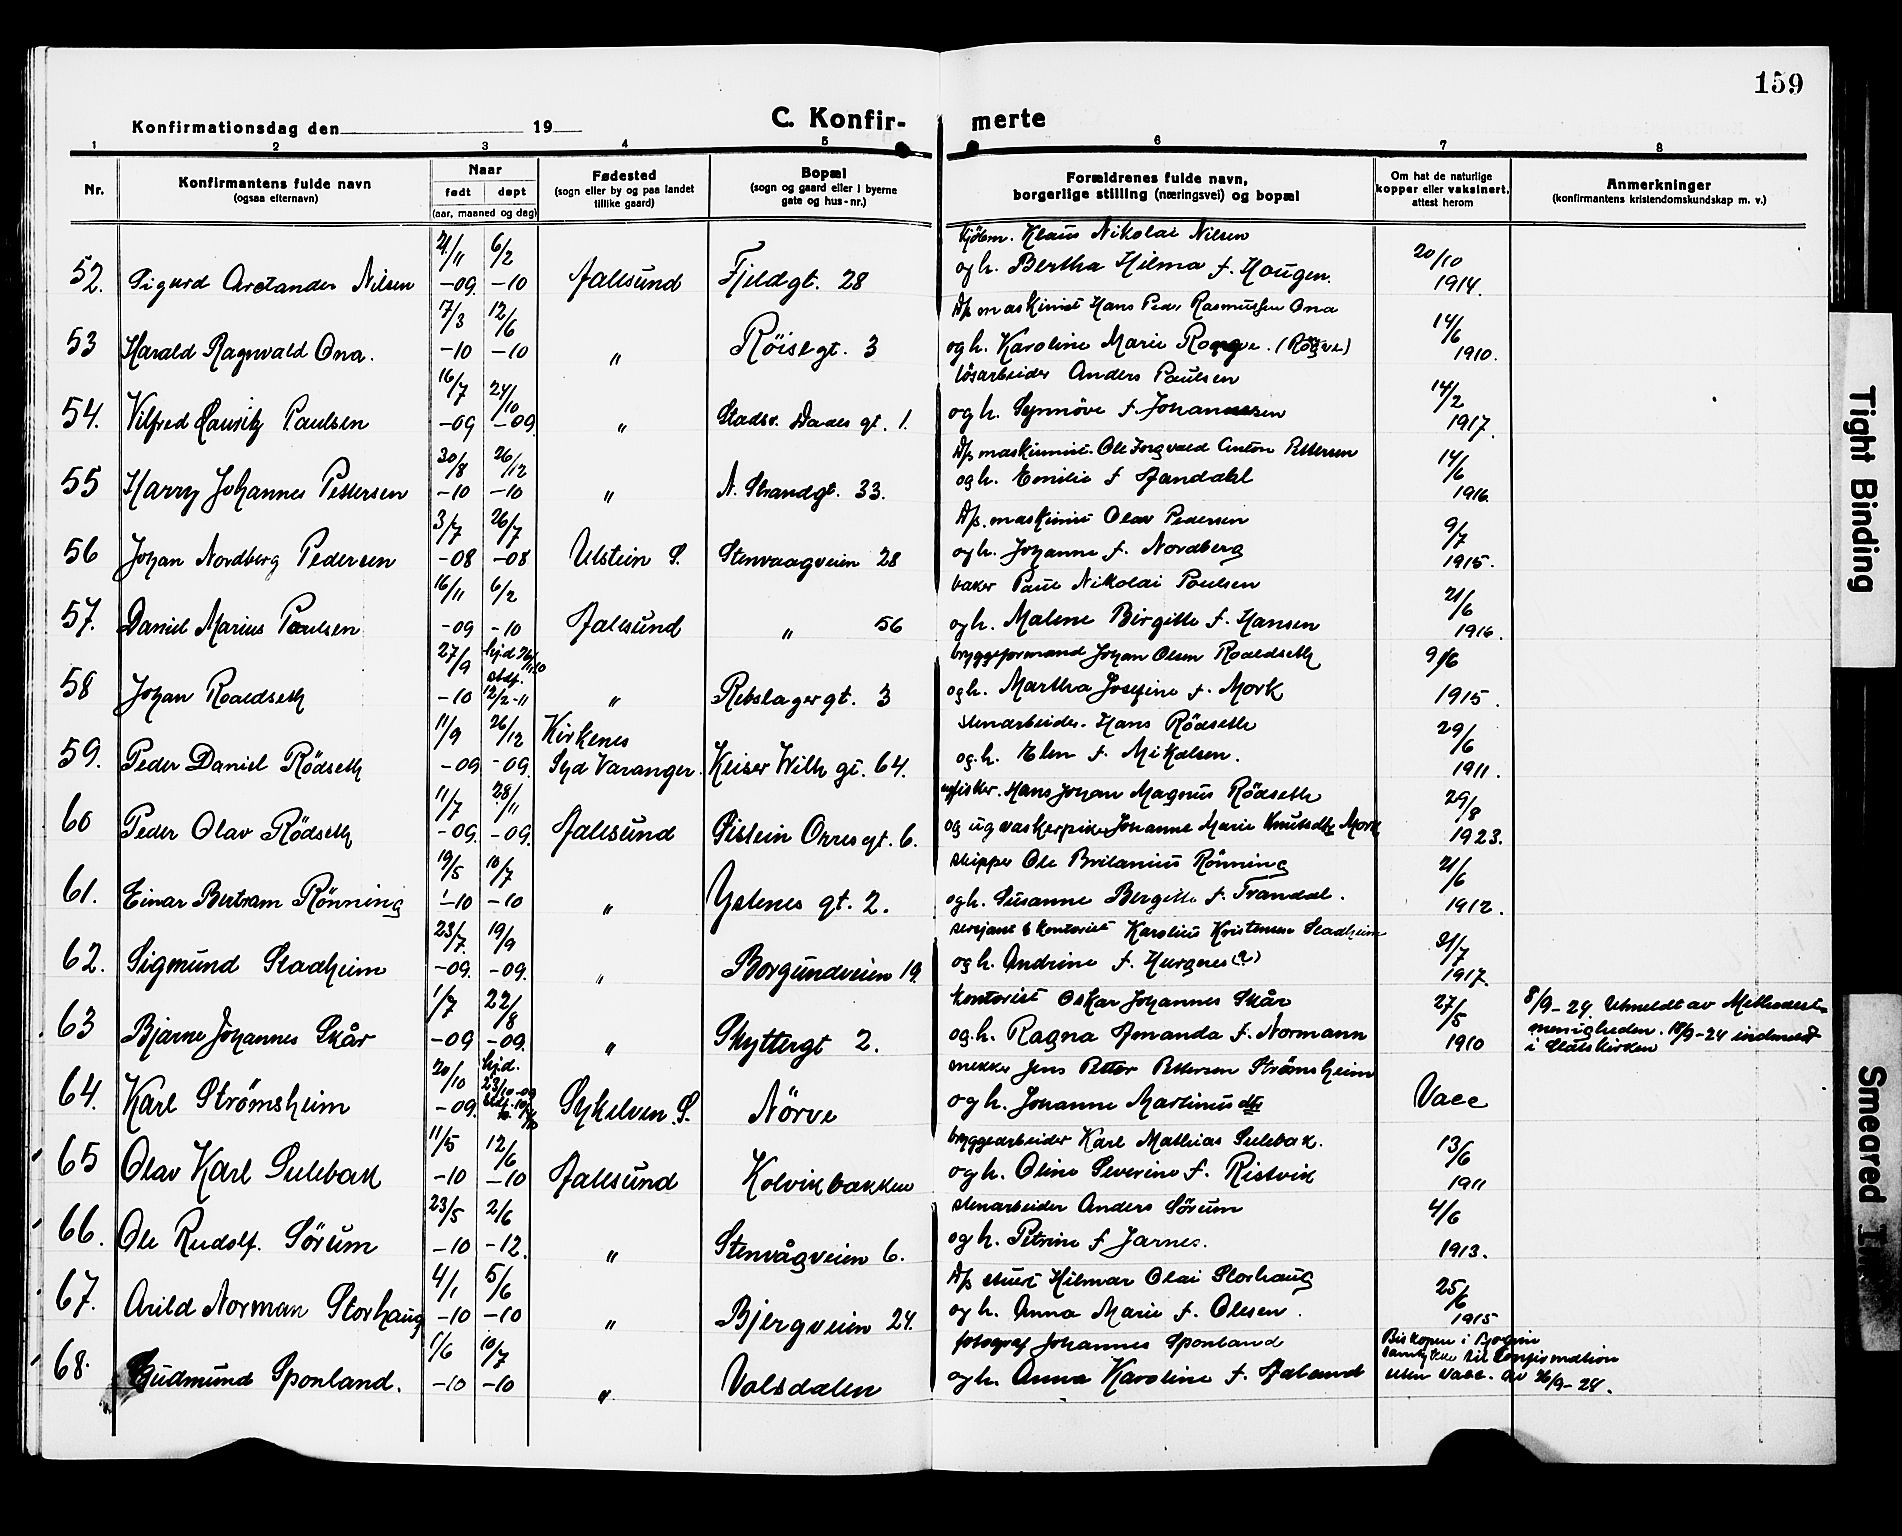 159
C. Konfir- merte
Konfirmationsdag den 19
1 2 3 4 5 6 7 8
Nr.
Konfirmantens fulde navn
(ogsaa efternavn)
Naar
født døpt
(aar, maaned og dag)
Fødested
(sogn eller by og paa landet
tillike gaard)
Bopæl
(sogn og gaard eller i byerne
gate og hus-nr.)
Forældrenes fulde navn,
borgerlige stilling (næringsvei) og bopæl
Om hat de naturlige
kopper eller vaksinert,
attest herom
Anmerkninger
(konfirmantens kristendomskundskap m. v.)
21/11 6/2 kjøbm. Klaus Nikolai Nilsen 20/10
52. Sigurd Arctander Nilsen -09. -10 Aalesund Fjeldgt. 28 og h. Bertha Hilma f. Haugen. 1914.
7/3 12/6 Dp maskinist Hans Peder Rasmussen Ona 14/6
53 Harald Ragnvald Ona. -10 -10 " Röisegt. 3 og h. Karoline Marie 1910.
16/7 24/10 lösarbeider Anders Paulsen 14/2
54. Vilfred Lauritz Paulsen -09 -09. " Stadsr. Daaes gt. 1. og h. Synnöve f. Johannessen 1917.
30/8 26/12 Dp maskinist. Ole Ingvald Anton Pettersen 14/6
55 Harry Johannes Pettersen -10 -10 " N. Strandgt. 33. og h. Emilie f Aandahl 1916.
3/7 26/7 Dp. maskinist Olav Pedersen 9/7
56 Johan Nordberg Pedersen -08 -08 Ulstein S. Stenvaagveien 28 og h. Johanne f. Nordberg 1915.
16/11 6/2 baker Paul Nikolai Paulsen 21/6
57. Daniel Marius Paulsen -09 -10 Aalesund " 56 og h. Malene Birgitte f. Hansen 1916.
27/9 hjd 26/11 10 bryggeformand Johan Olsen Roaldseth 9/6
58 Johan Roaldseth -10 12/2-11 " Rebslagergt. 3 og h. Martha Josefine f. Mork 1915.
11/9 26/12 Kirkenes stenarbeider. Hans Rödseth 29/6
59. Peder Daniel Rödseth -09 -09. Syd Varanger. Keiser Wilh gt. 64. og. h. Elen f. Mikalsen. 1911.
11/7 28/11 ugfisker. Hans Johan Magnus Rödseth 29/8
60 Peder Olav Rödseth -09. -09. Aalesund Öistein Orresgt. 6. og ug vaskerpike Johanne Marie Knutsdtr Mork 1923.
19/5 10/7 skipper Ole Britanius Rönning 21/6
61. Einar Bertram Rönning -10 -10 " Ystenes gt. 2. og h. Susanne Bergitte f. Trandal. 1912.
23/7 19/9 sersjant & kontorist Karolius Kristensen Stadheim 31/7
62. Sigmund Stadheim -09. -09. " Borgundveien 19. og h. Andrine f. (?) 1917.
1/7 22/8 kontorist Oskar Johannes Skår 27/5 8/9-24. Utmeldt av Methodist-
63 Bjarne Johannes Skår -09 -09. " Skyttergt 2. og. h. Ragna Amanda f. Normann 1910 menigheden. 18/9-24 indmeldt
i Statskirken
20/10 hjd. 23/10-09 snekker Jens Petter Pettersen Strømsheim
64. Karl Strømsheim -09. Sykelven S. Nörve og h. Johanne Martinusdtr Vacc
11/5 12/6 bryggearbeider Karl Mathias Sulebak. 13/6
65 Olav Karl Sulebak -10 -10 Aalesund Kolvikbakken og h. Oline Severine f. Ristvik 1911
23/5 2/6 stenarbeider Anders Sørum 4/6
66. Ole Rudolf. Sörum -10 -12. " Stenvågveien 6. og h. Petrine f Jarnes. 1913.
4/1 5/6 Dp stuert Hilmar Olai Storhaug 25/6
67. Arild Norman Storhaug -10 -10 " Bjergveien 24. og h. Anna Marie f. Olsen. 1915
1/6 10/7 fotograf Johannes Sponland Biskopen i Bjørgvin
68. Gudmund Sponland. -10 -10 " Volsdalen og h. Anna Karoline f. Aaland samtykke til konfirmation
uten vacc. av 26/9-24.
Tight Binding
Smeared